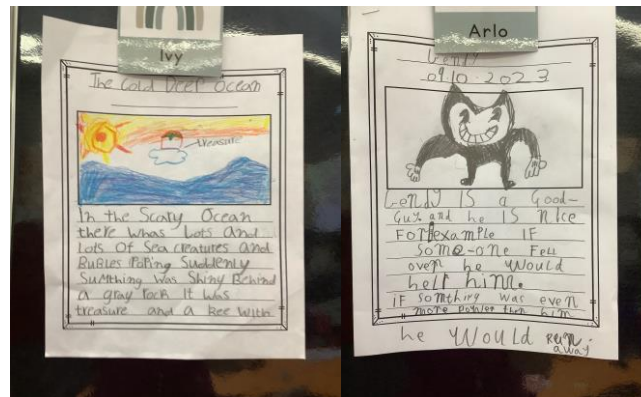 Ivy
The Cold Deep Ocean
treasure
In the Scary Ocean
there whas Lots and
Lots Of Sea creatures and
BuBles Poping Suddenly
Sumthing was Shiny Behind
a gray rock It was
treasure and a Kee With
Arlo
09.10.2023
IS a Good-
Guy and he IS nice
For example IF
Some-one Fell
over he Would
help him.
IF Somthing was even
more Powler then him
he Would run.
away